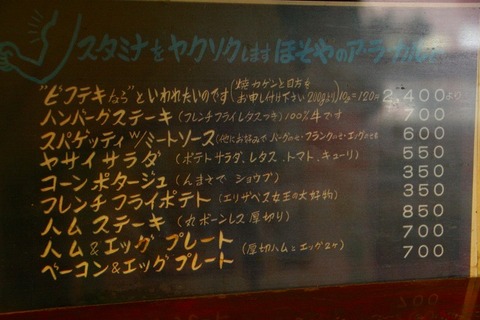 スタミナをヤクソクします ほそやのア・ラ・カルト
"ビフテキなら"といわれたいのです(焼カゲンと目方をお申し付け下さい 200gより)10g=120円 2,400より
ハンバーグステーキ (フレンチフライレタスつき) 100%牛です 700
スパゲッティ W/ミートソース (他にお好みで バーグのせ・フランクのせ・エッグのせも 600
ヤサイサラダ (ポテトサラダ、レタス、トマト、キューリ) 550
コーンポタージュ (んまさで ショウブ) 350
フレンチフライポテト (エリザベス女王の大好物) 350
ハムステーキ (丸ボーンレス厚切り) 850
ハム&エッグ プレート (厚切ハム=エッグ2ヶ) 700
ベーコン&エッグプレート 700